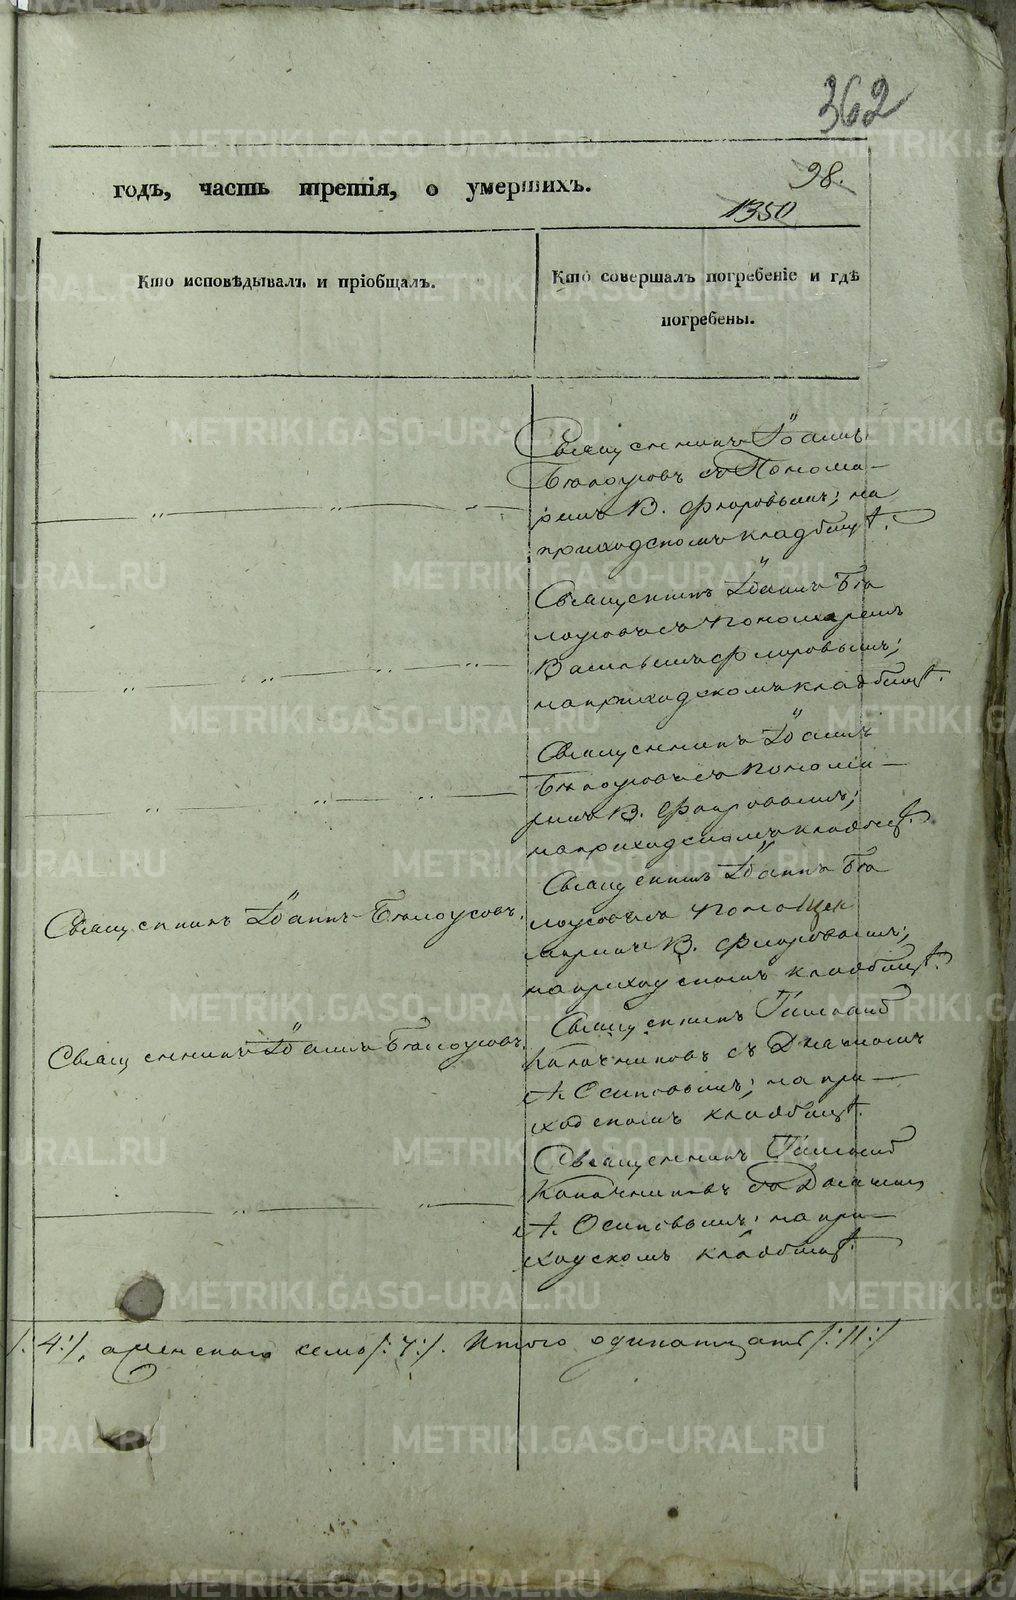 362
годъ, часть третія, о умершихъ.
98.
1350
Кто исповѣдывалъ и пріобщалъ.
Кто совершалъ погребеніе и гдѣ
погребены.
Священникъ Іоаннъ
Бѣлоусовъ съ Понома-
ремъ В. Флоровымъ; на
приходскомъ кладбищѣ.
Священникъ Іоаннъ Бѣ
лоусовъ съ пономаремъ
Васильемъ Флоровымъ;
на приходскомъ кладбищѣ.
Священникъ Іоаннъ
Бѣлоусовъ съ понома-
ремъ В. Флоровымъ;
на приходскомъ кладбищѣ.
Священникъ Іоаннъ Бѣ
Священникъ Іоаннъ Бѣлоусовъ.
лоусовъ съ
В. Флоровымъ;
на приходскомъ кладбищѣ.
Священникъ
Священникъ Іоаннъ Бѣлоусовъ.
Калачниковъ съ Дьячкомъ
А. Осиповымъ; на при-
ходскомъ кладбищѣ.
Священникъ
Калачниковъ съ
А. Осиповымъ; на при-
ходскомъ кладбищѣ.
/:4:/, а женскаго семь /:7:/. Итого одинатцать /:11:/
METRIKI.GASO-URAL.RU